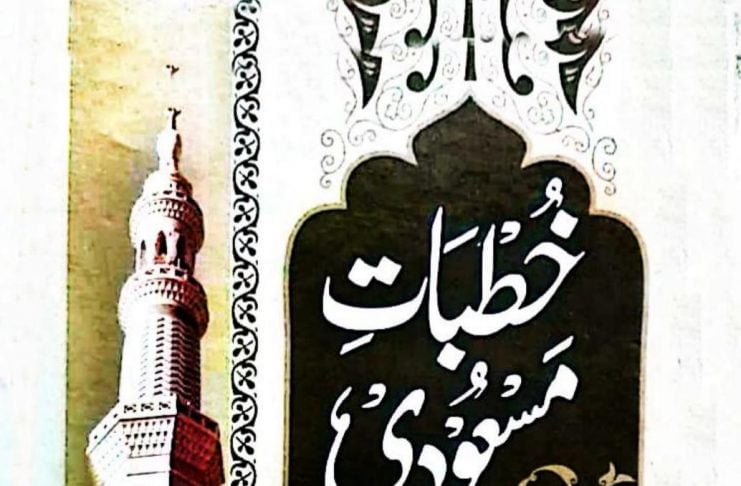 خُطْبَاتِ
مَسْعُوْدِیْ